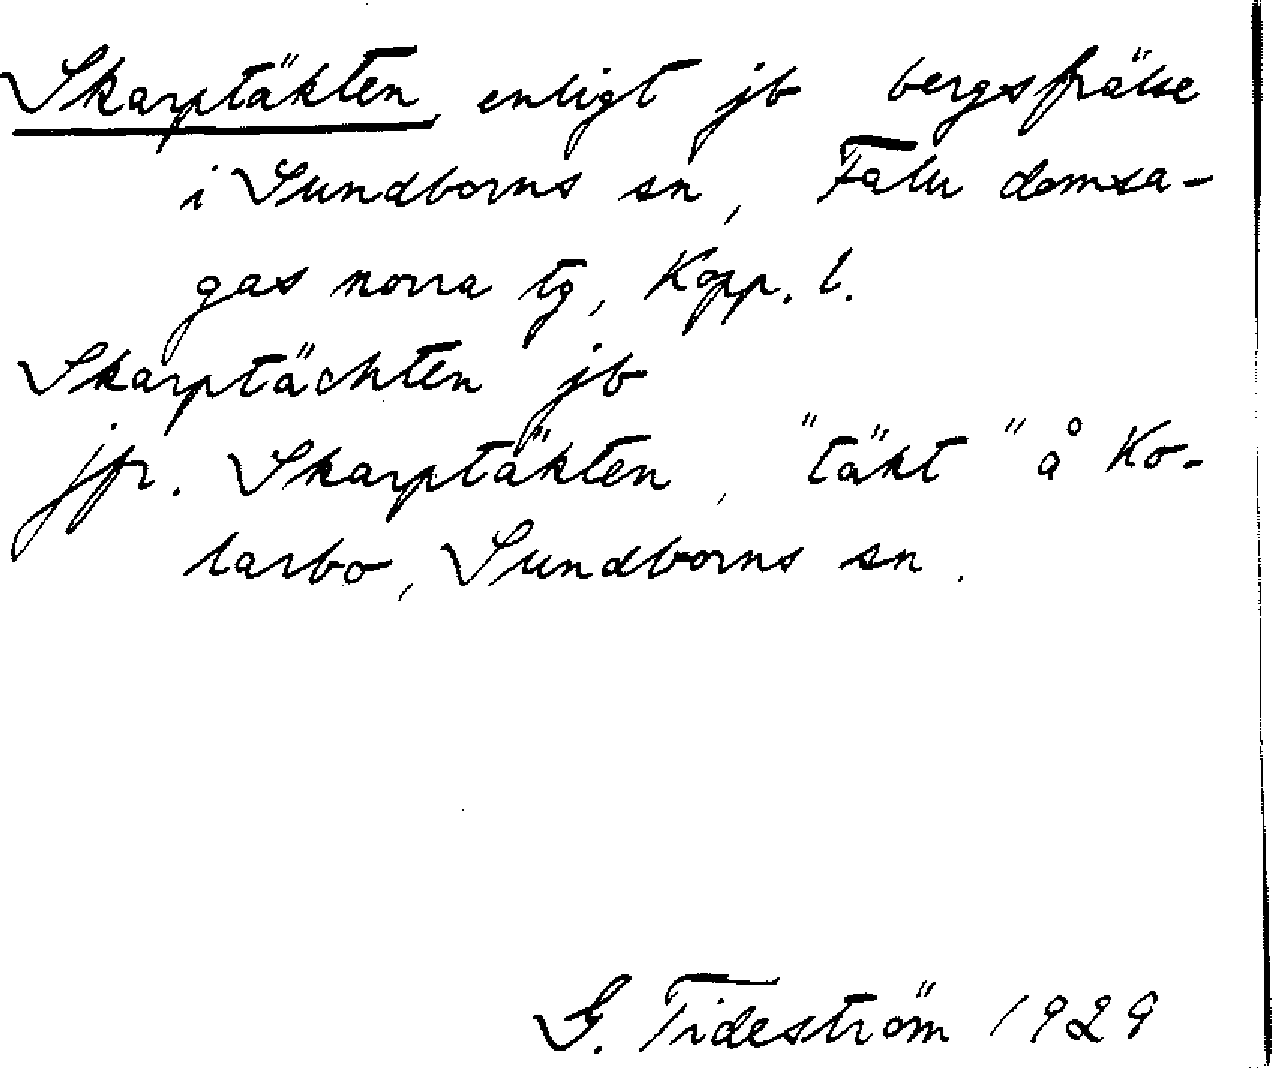 Skarptäkten, enligt jb bergsfrälse
i Sundborns sn, Falu domsa-
gas norra tg, Kopp. l.
Skarptächten jb
jfr. Skarptäkten, "täkt" å Ko-
larbo, Sundborns sn.
G. Tideström 1929